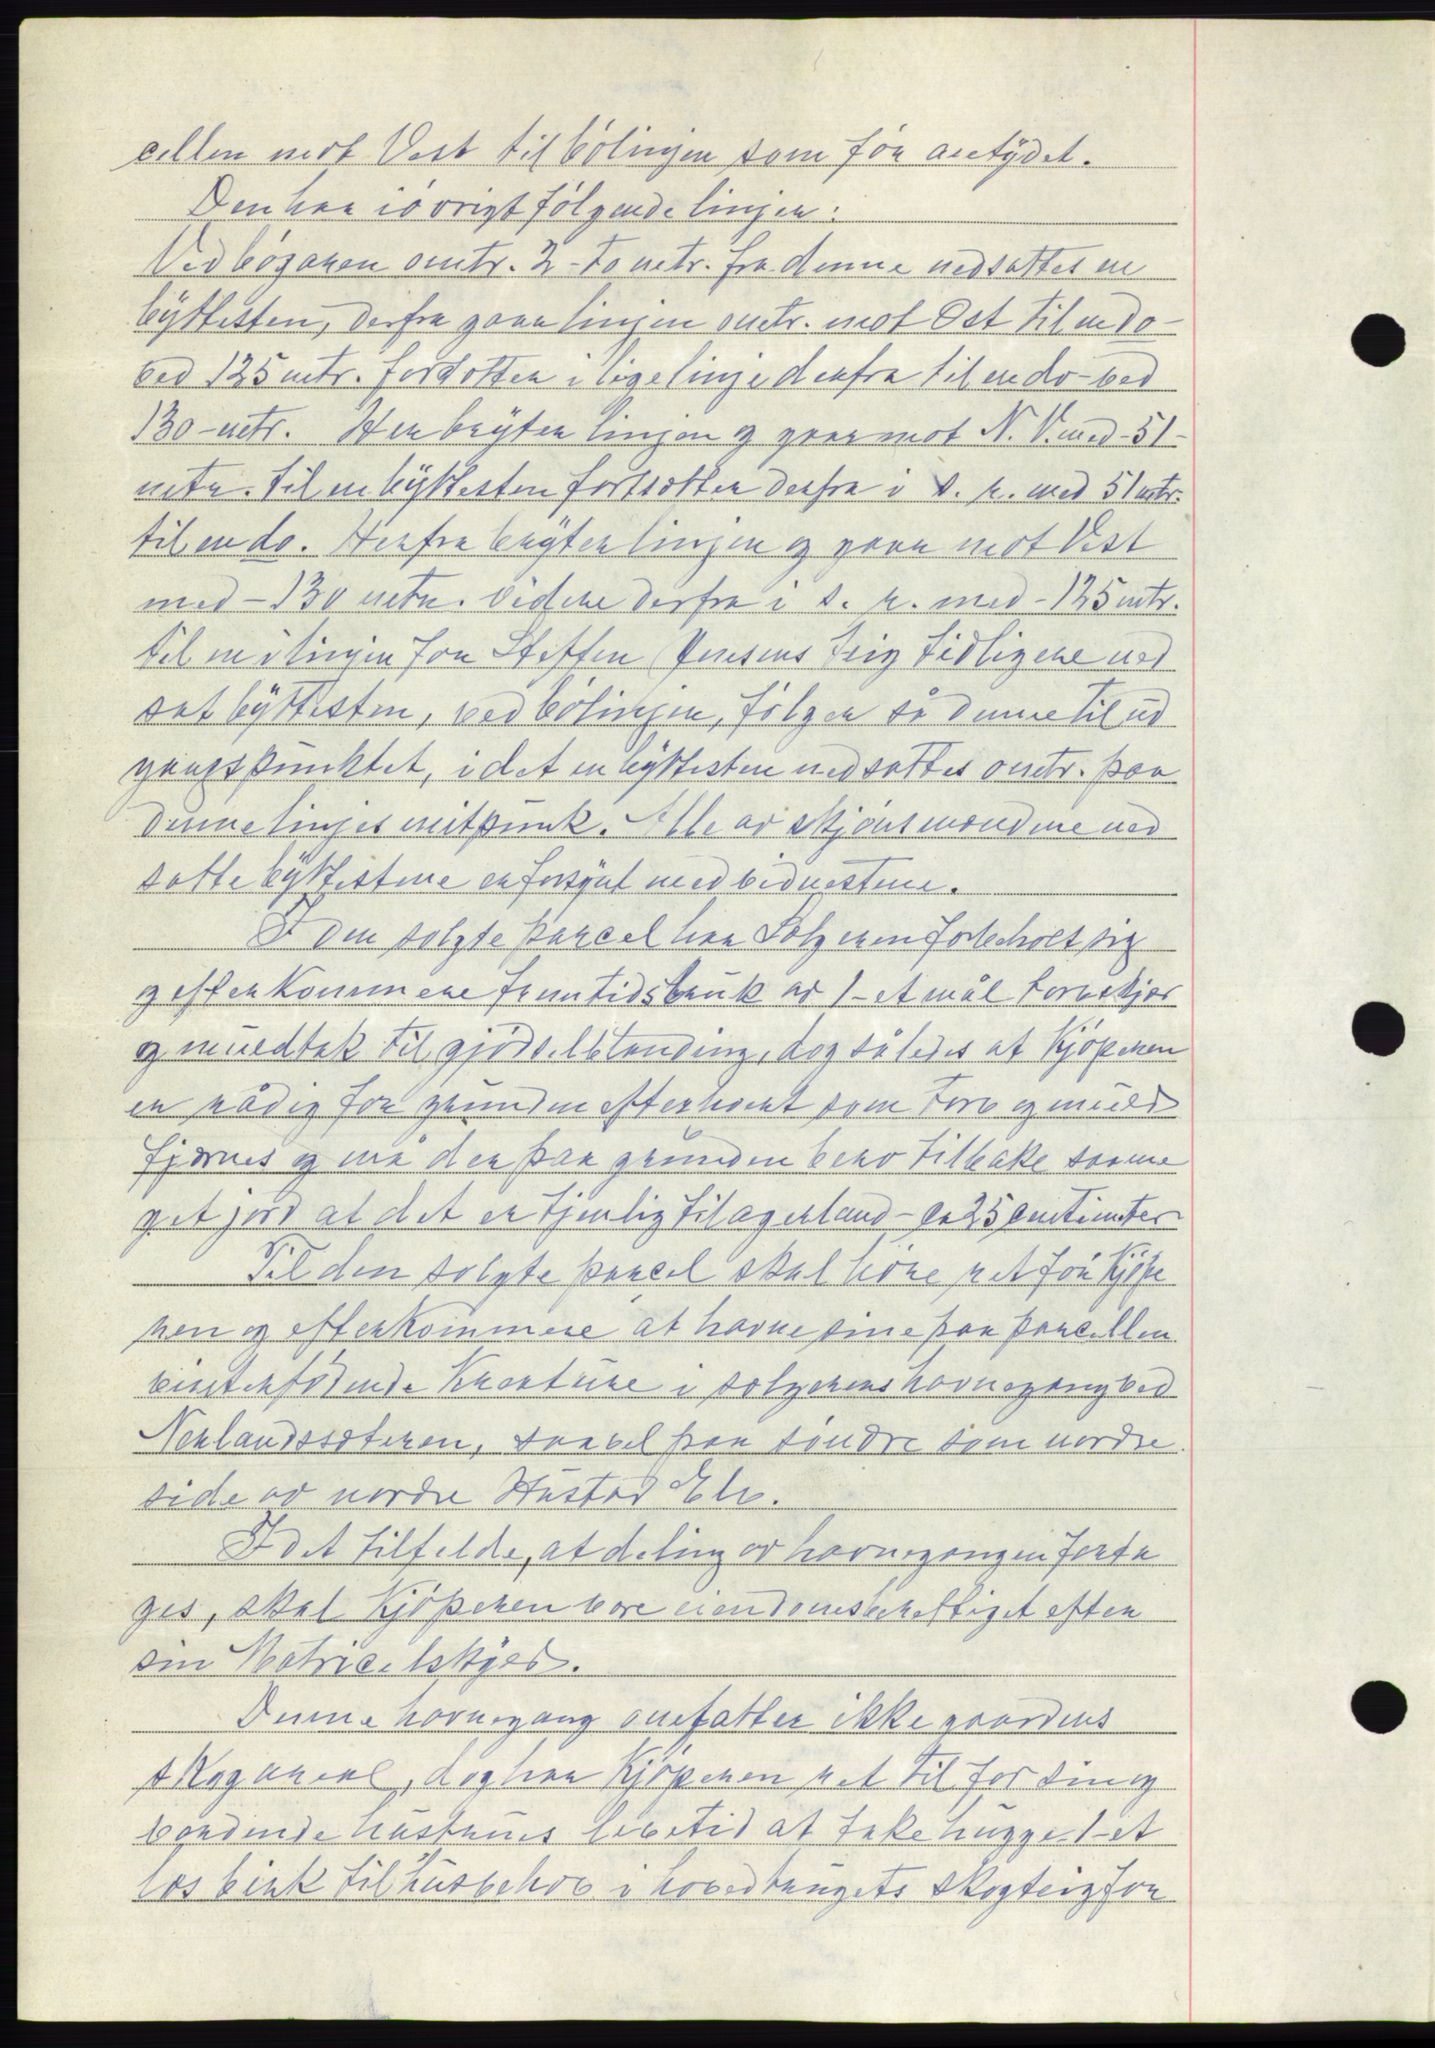 cellen mot Vest til bölinjen som för antydet.
Den har iövrigt följende linjer:
Ved bögaren omtr. 2-to metr. fra denne nedsattes en
byttesten, derfra gaar linjen omtr. mot Ost til en do-
ved 125 mtr. fortsetter i lige linje derfra til en do-ved
130-metr. Her bryter linjen og gaar mot N.V. med-51-
metr. til en byttesten fortsætter derfra i s. r. med 51 mtr.
til en do. Herfra bryter linjen og gaar mot Vest
med-130 metr. videre derfra i s. r. med-125 mtr.
til en i linjen for Steffen Jensens teig tidligere ned
sat byttesten, ved bölinjen, fölger så denne til ud
gangspunktet, idet en byttesten nedsattes omtr. paa
denne linjes mitpunk. Alle av skjönsmændene ned
satte byttestene er forsynt med vidnestene.
I den solgte parcel har Sælgeren forbeholt sig
og efterkommere fremtidsbruk av 1-et mål torvskjær
og muldtak til gjödselblanding, dog således at Kjöperen
er rådig for grunden efterhvert som torv og muld
fjærnes og må der paa grunden bero tilbake saame
get jord at det er tjenlig til agerland-ca 25 centimeter
Til den solgte parcel skal höre ret for Kjöpe
ren og efterkommere at havne sine paa parcellen
vinterfödende Kreature i sælgerens havnegang ved
Nerlandssæteren, saavel paa söndre som nordre
side av nordre Hustad Elv.
I det tilfelde, at deling av havnegangen forta
ges, skal Kjöperen være eiendomsberettiget efter
sin Matricelskyld.
Denne havnegang omfatter ikke gaardens
skogareal, dog har Kjöperen ret til for sin og
vordende hustrues levetid at take hugge-1-et
læs birk til husbehov i hovedbrugets skogteig for